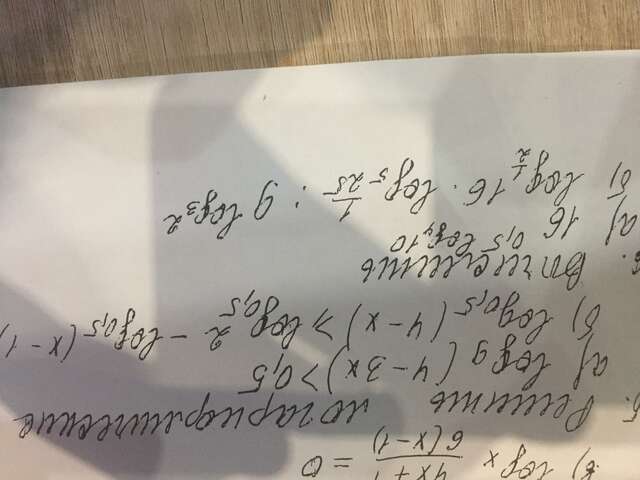 в) log x (4x + 1)/(6(x-1)) = 0
5. Решить логарифмические
а) log₉ (4 - 3x) > 0,5
б) log₀,₅ (4 - x) ≥ log₀,₅ 2 - log₀,₅ (x - 1)
6. Вычислить
а) 16^(0,5 log₄ 10)
б) log_(1/2) 16 · log₅ 1/25 : 9^(log₃ 2)